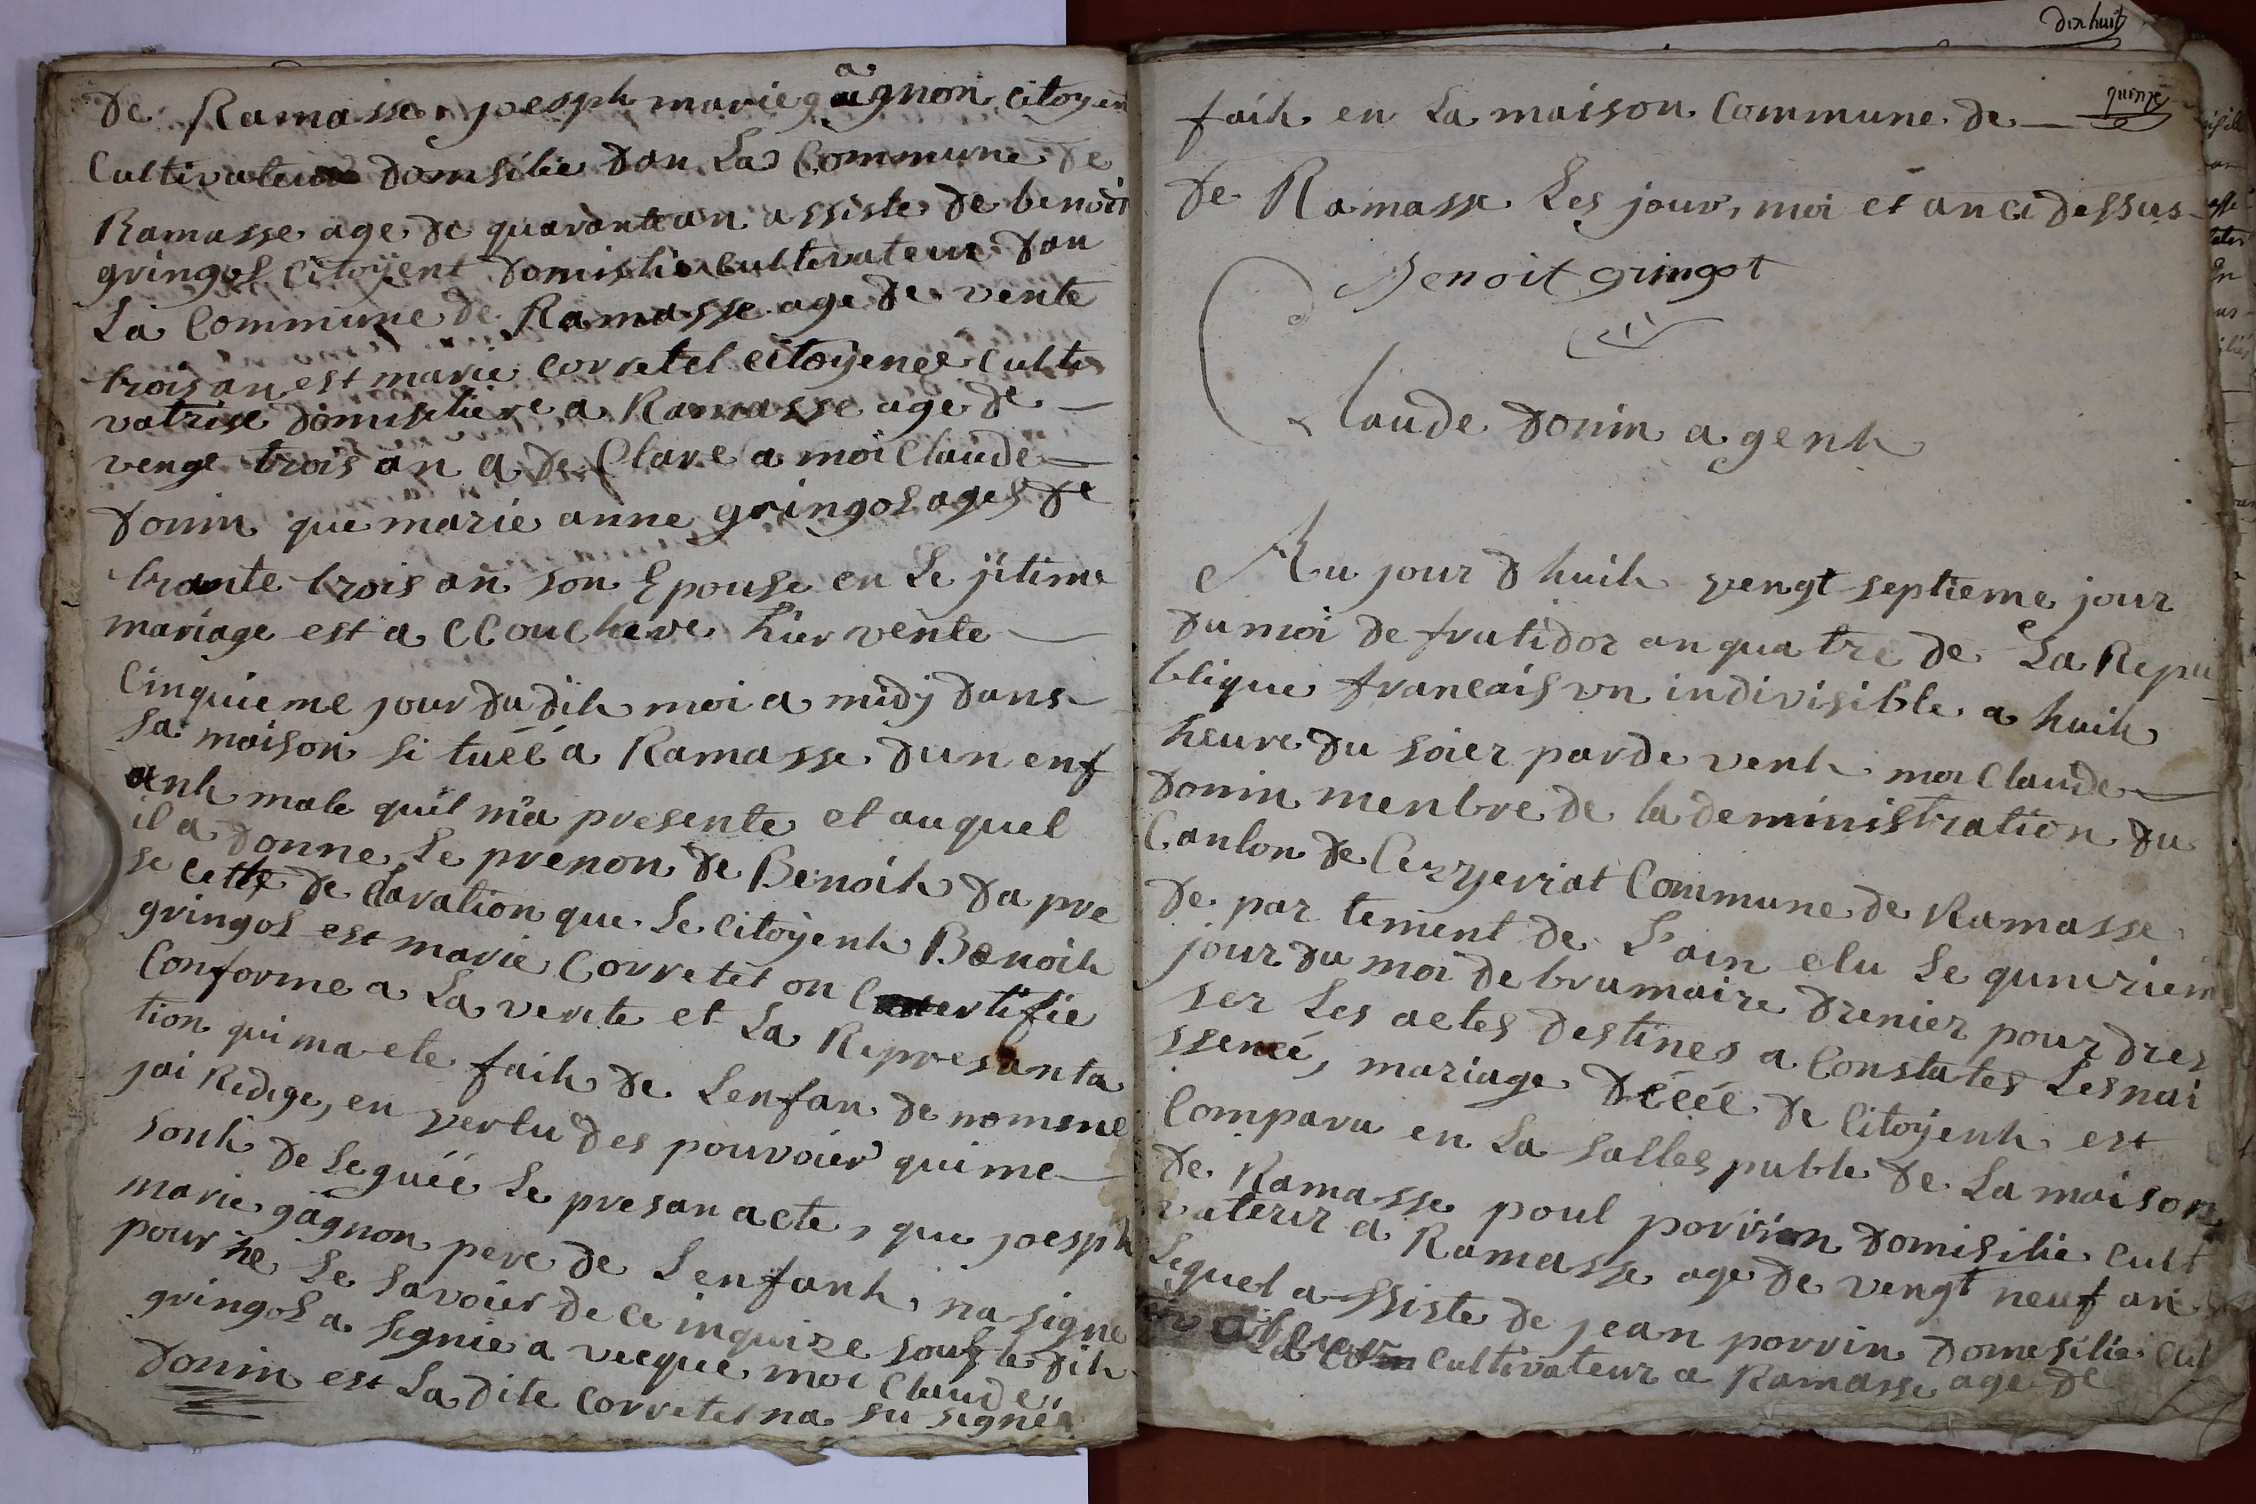 de Ramasse, joesph marie gâgnon citoyen
Cultivateur domsilie dan La Commune de
Ramasse age de quarante an assiste de benoit
gringos citoÿent domislie cultivateur dan
La Commune de Ramasse age de vente
trois an est marie corretel citoyenee culti
vatrise domisiliere a Ramasse age de —
venge trois an a de Clare a moi Claude —
donin que marie anne gringos ages de
trante trois an son Epouse en Le jitime
mariage est a ccouchere hier vente —
Cinquieme jour du dih moi a midj dans —
sa maison si tuéé a Ramasse dun enf
anh male quil m'a presente et auquel
il a donne Le prenon de Benoih da pre
se cette de claration que Le citoÿenh Benoih
gringos est marie Corretet on Certifie
Conforme a La verite et La Represanta
tion qui ma ete faih de Lenfan de nomme
jai Redige, en vertu des pouvoier qui me —
sonh de Leguéé Le presan acte, que joesph
marie gâgnon pere de Lenfanh, na signe
pour ne Le savoier de ce inquize sous le dih
gringos a signie a vecque moi Claude
donin est La dite corretet na su signéé
dix huit
quinze
faih en La maison Commune de —
de Ramasse Les jour, moi et an ci dessus —
Benoit gringot
Claude donin agenh
Au jour d huih vengt septieme jour
du moi de frutidor an quatre de La Repu
blique francais un indivisible a huih
heure du soier par de venh moi Claude —
donin menbre de la deministration du
Canton de Cezyeriat Commune de Ramasse
de par tement de L'ain elu Le qunzriem
jour du moi de brumaire drenier pour dres
ser Les actes destines a Constates Les nai
ssencé, mariage décéé de citoÿenh est
Comparu en La salles puble de La maison
de Ramasse poul porvin domisilie cult
vaterir a Ramasse age de vengt neuf an
Lequel a ssiste de jean porvin domesilie cul
cultivateur a Ramasse age de